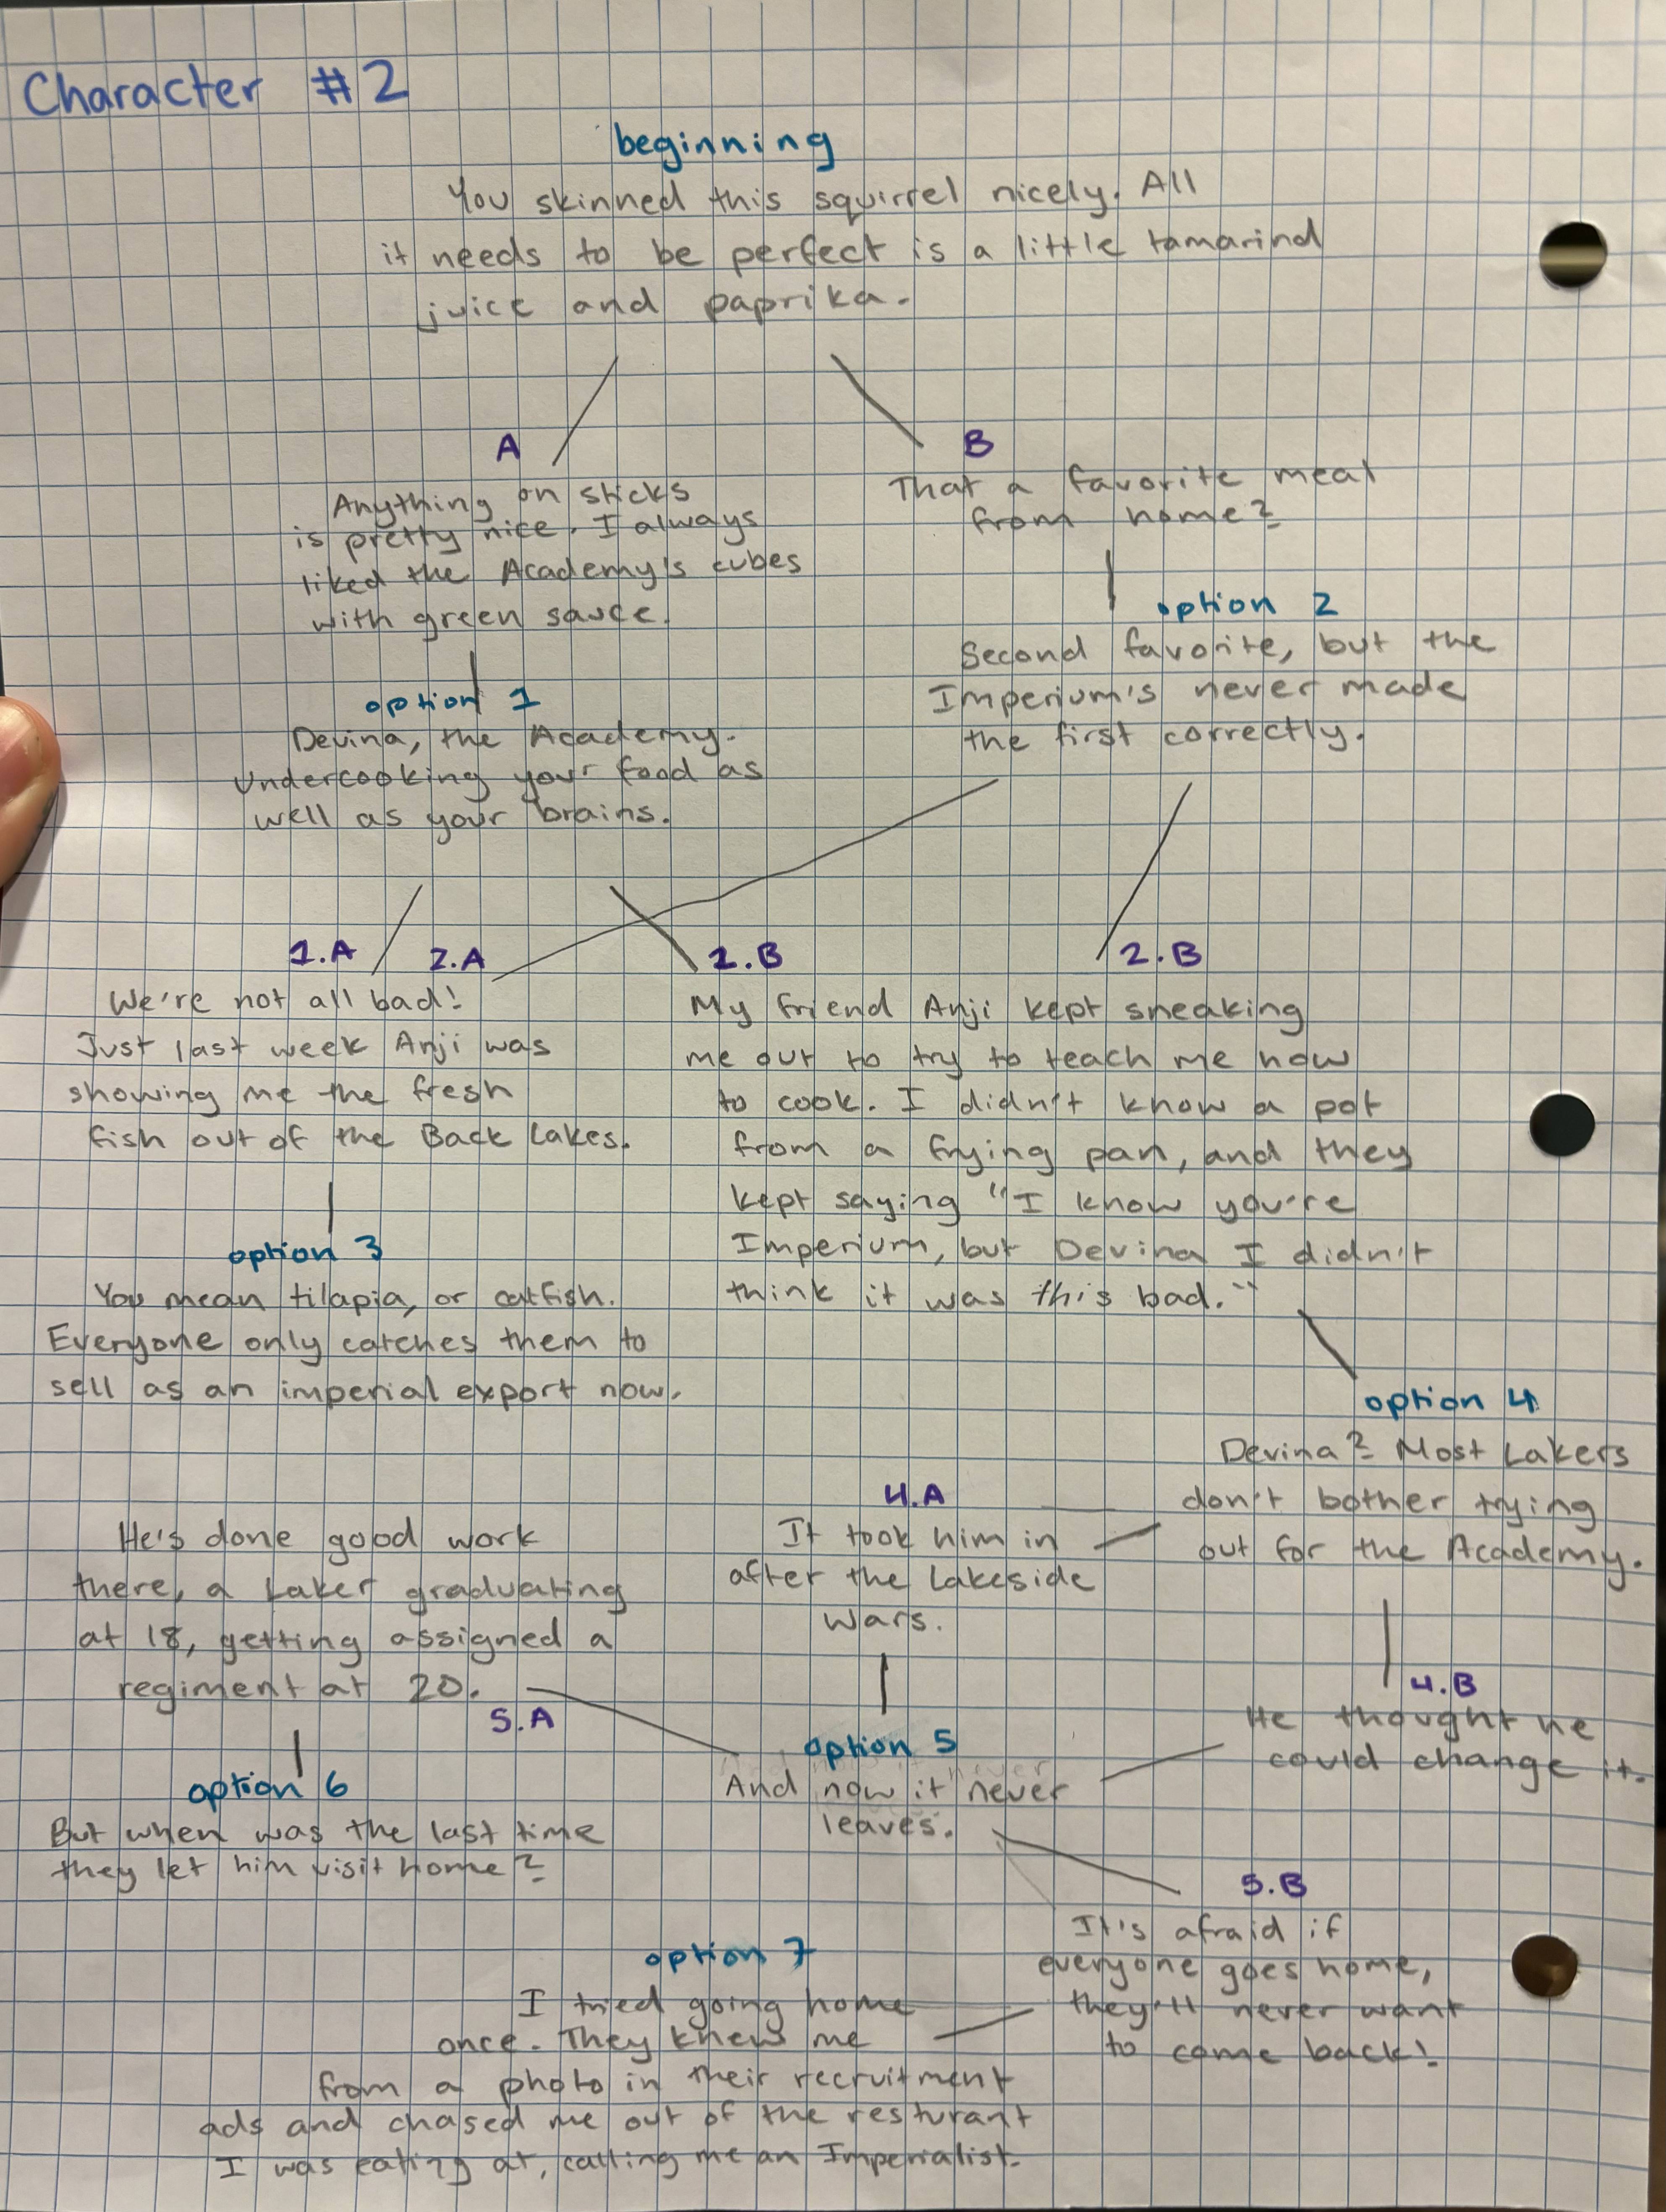 Character #2
beginning
You skinned this squirrel nicely. All
it needs to be perfect is a little tamarind
juice and paprika.
A
Anything on sticks
is pretty nice. I always
liked the Academy's cubes
with green sauce.
B
That a favorite meal
from home?
option 1
Devina, the Academy.
Undercooking your food as
well as your brains.
option 2
Second favorite, but the
Imperium's never made
the first correctly.
1.A 2.A
We're not all bad!
Just last week Anji was
showing me the fresh
fish out of the Back Lakes.
1.B 2.B
My friend Anji kept sneaking
me out to try to teach me how
to cook. I didn't know a pot
from a frying pan, and they
kept saying "I know you're
Imperium, but Devina I didn't
think it was this bad."
option 3
You mean tilapia, or catfish.
Everyone only catches them to
sell as an imperial export now.
option 4
Devina? Most Lakers
don't bother trying
out for the Academy.
4.A
It took him in
after the Lakeside
Wars.
4.B
He thought he
could change it.
option 5
And now it never
leaves.
He's done good work
there, a Laker graduating
at 18, getting assigned a
regiment at 20.
5.A
option 6
But when was the last time
they let him visit home?
5.B
It's afraid if
everyone goes home,
they'll never want
to come back!
option 7
I tried going home
once. They knew me
from a photo in their recruitment
ads and chased me out of the resturant
I was eating at, calling me an Imperialist.